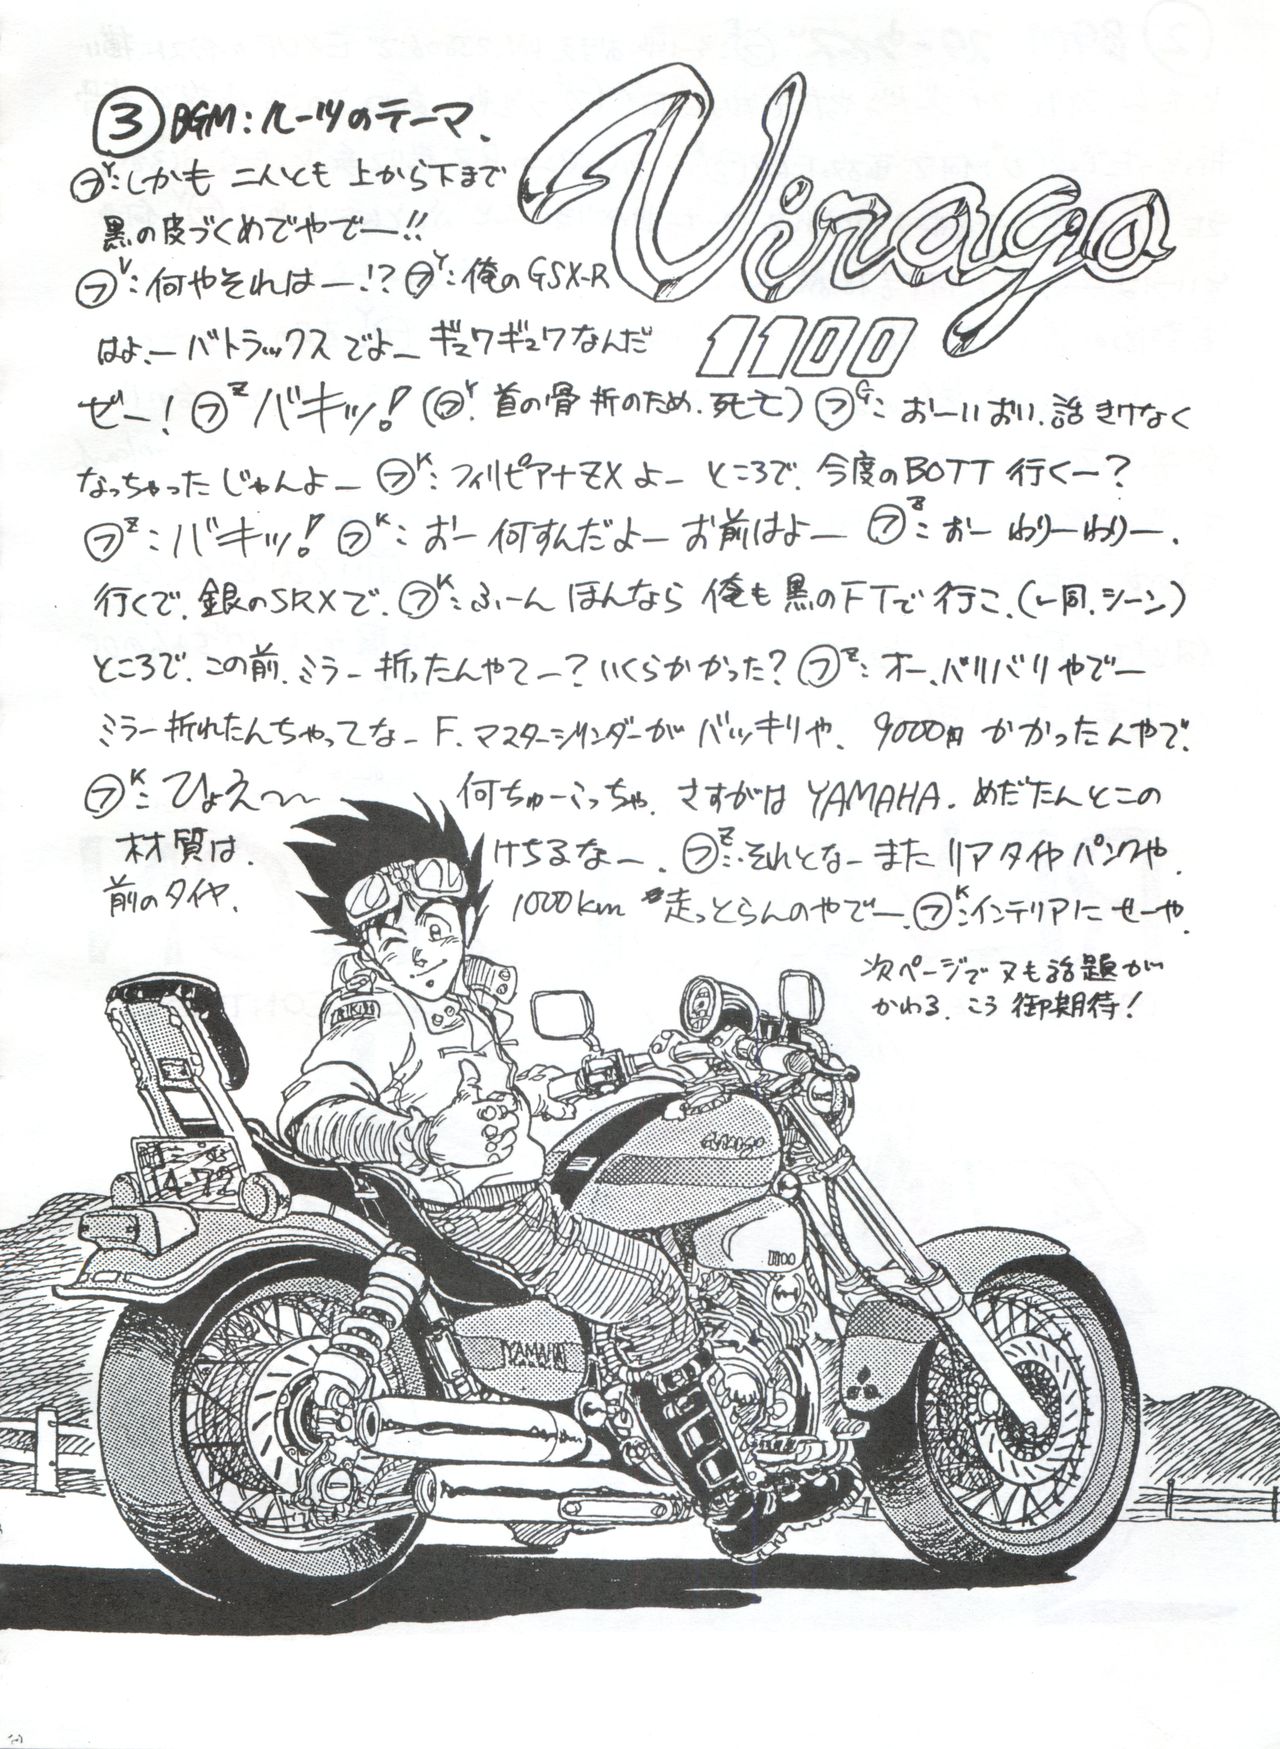 ③ BGM:ルーツのテーマ.
Virago
1100
㋫Y:しかも 二人とも 上から下まで
黒の皮づくめでやでー!!
㋫V:何やそれはー!? ㋫Y:俺のGSX-R
はよーバトラックスでよー ギュワギュワなんだ
ぜー! ㋫Z バキッ! (㋫Y.首の骨折のため.死亡) ㋫G:おーいおい.話きけなく
なっちゃったじゃんよー ㋫K:フィリピアナZXよー ところで.今度のBOTT行くー?
㋫Z:バキッ! ㋫K:おー何すんだよーお前はよー ㋫Z:おーわりーわりー.
行くで.銀のSRXで. ㋫K:ふーん ほんなら 俺も黒のFTで行こ.(と同.シーン)
ところで.この前.ミラー折ったんやてー?いくらかかった? ㋫Z:オー.バリバリやでー
ミラー折れたんちゃってなー F.マスターシリンダーがバッキリや. 9000円かかったんやで.
㋫K:ひょえ〜〜 何ちゅーこっちゃ. さすがはYAMAHA. めだたんとこの
材質は. けちるなー. ㋫Z:それとなーまたリアタイヤパンクや.
前のタイヤ. 1000km 走っとらんのやでー. ㋫K:インテリアにせーや.
次ページでヌも話題が
かわる.こう御期待!
Virago
1100
YAMAHA
4-72